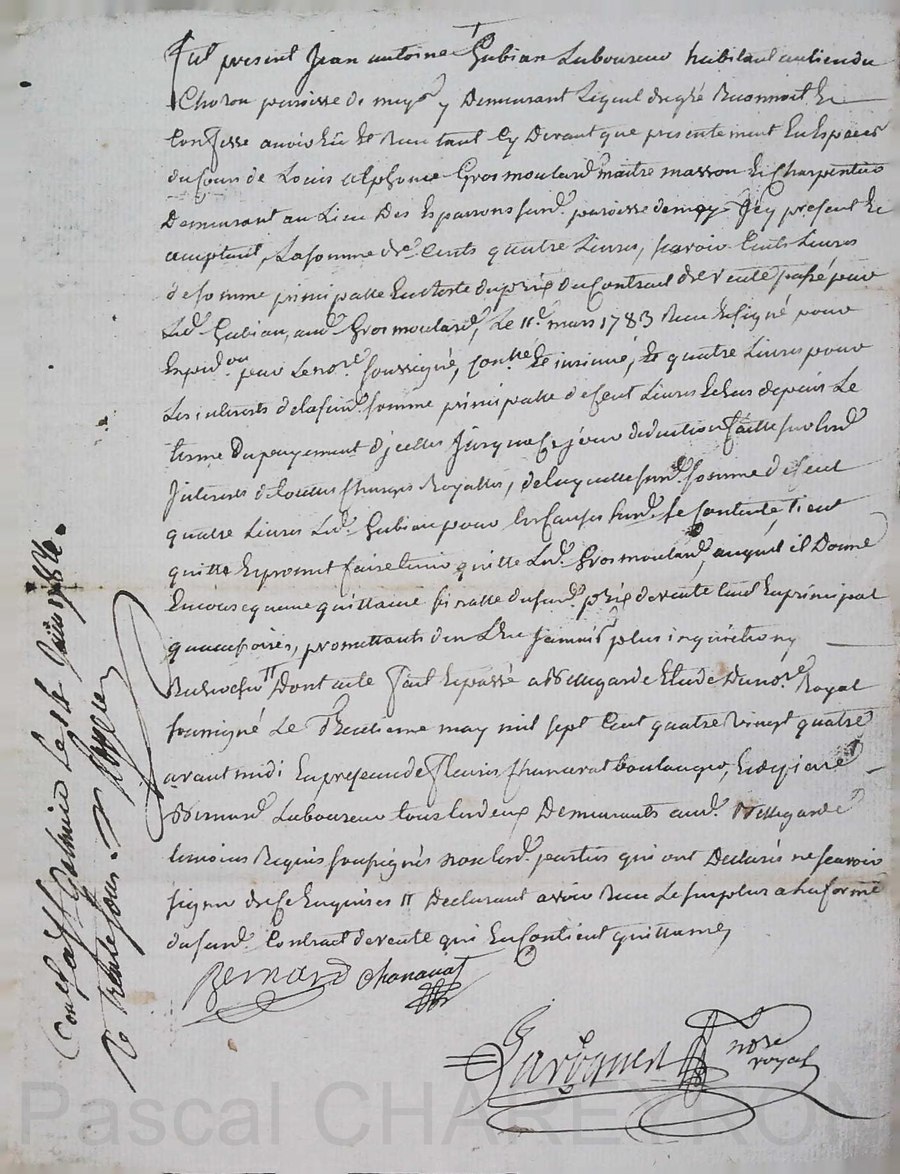 Fut présent Jean antoine Gubian Laboureur habitant au lieu du
Choron paroisse de mey y Demeurant Lequel de gré Reconnoit Et
Confesse avoir Eû Et Receu tant Cy Devant que presentement En Especes
du Cours de Louis alphonce Grosmoulard maitre masson Et Charpentier
Demeurant au Lieu Des Esparrons susd. paroisse de Icy present Et
acceptant, La somme de Cents quatre Livres, scavoir Cents Livres
de somme principalle En Reste du prix du Contract de vente passé par
Led. Gubian, aud. Grosmoulard, Le 11e. mars 1783 Receu Et signé pour
Expedon. par Le nore. soussigné, Conllé Et insinué, Et quatre Livres pour
Les interests de lasusd. somme principalle de Cent Livres Echus depuis Le
terme Du payement d'jcelles Jusques Ce jour deduction faitte sur lesd.
Interests de toutes Charges Royalles, de laquelle susd. somme de Cent
quatre Livres Led. Gubian pour les Causes susd. se Contente, tient
quitte Et promet faire tenir quitte Led. Grosmoulard, auquel il Donne
En Consequence quittance du susd. prix de vente tant En principal
qu'accessoires, promettants de ne L'En Jamais plus inquietter ny
Rechercher Dont acte fait Et passé a Bellegarde Etude Du nore. Royal
soussigné Le Trentieme may mil sept Cent quatre vingt quatre
avant midi En presence de Fleury Chanavat boulanger, Et de pierre
Bernard Laboureur tous les deux Demeurants aud. Bellegarde
temoins Requis soussignés non lesd. parties qui ont Declarés ne scavoir
signer de ce Enquises Declarant avoir Receu
du susd. Contract de vente qui En Contient quittance,
Bernard Chanavat
nore
royal
Conllé a Le Juin 1784.
Pascal CHAREYRON